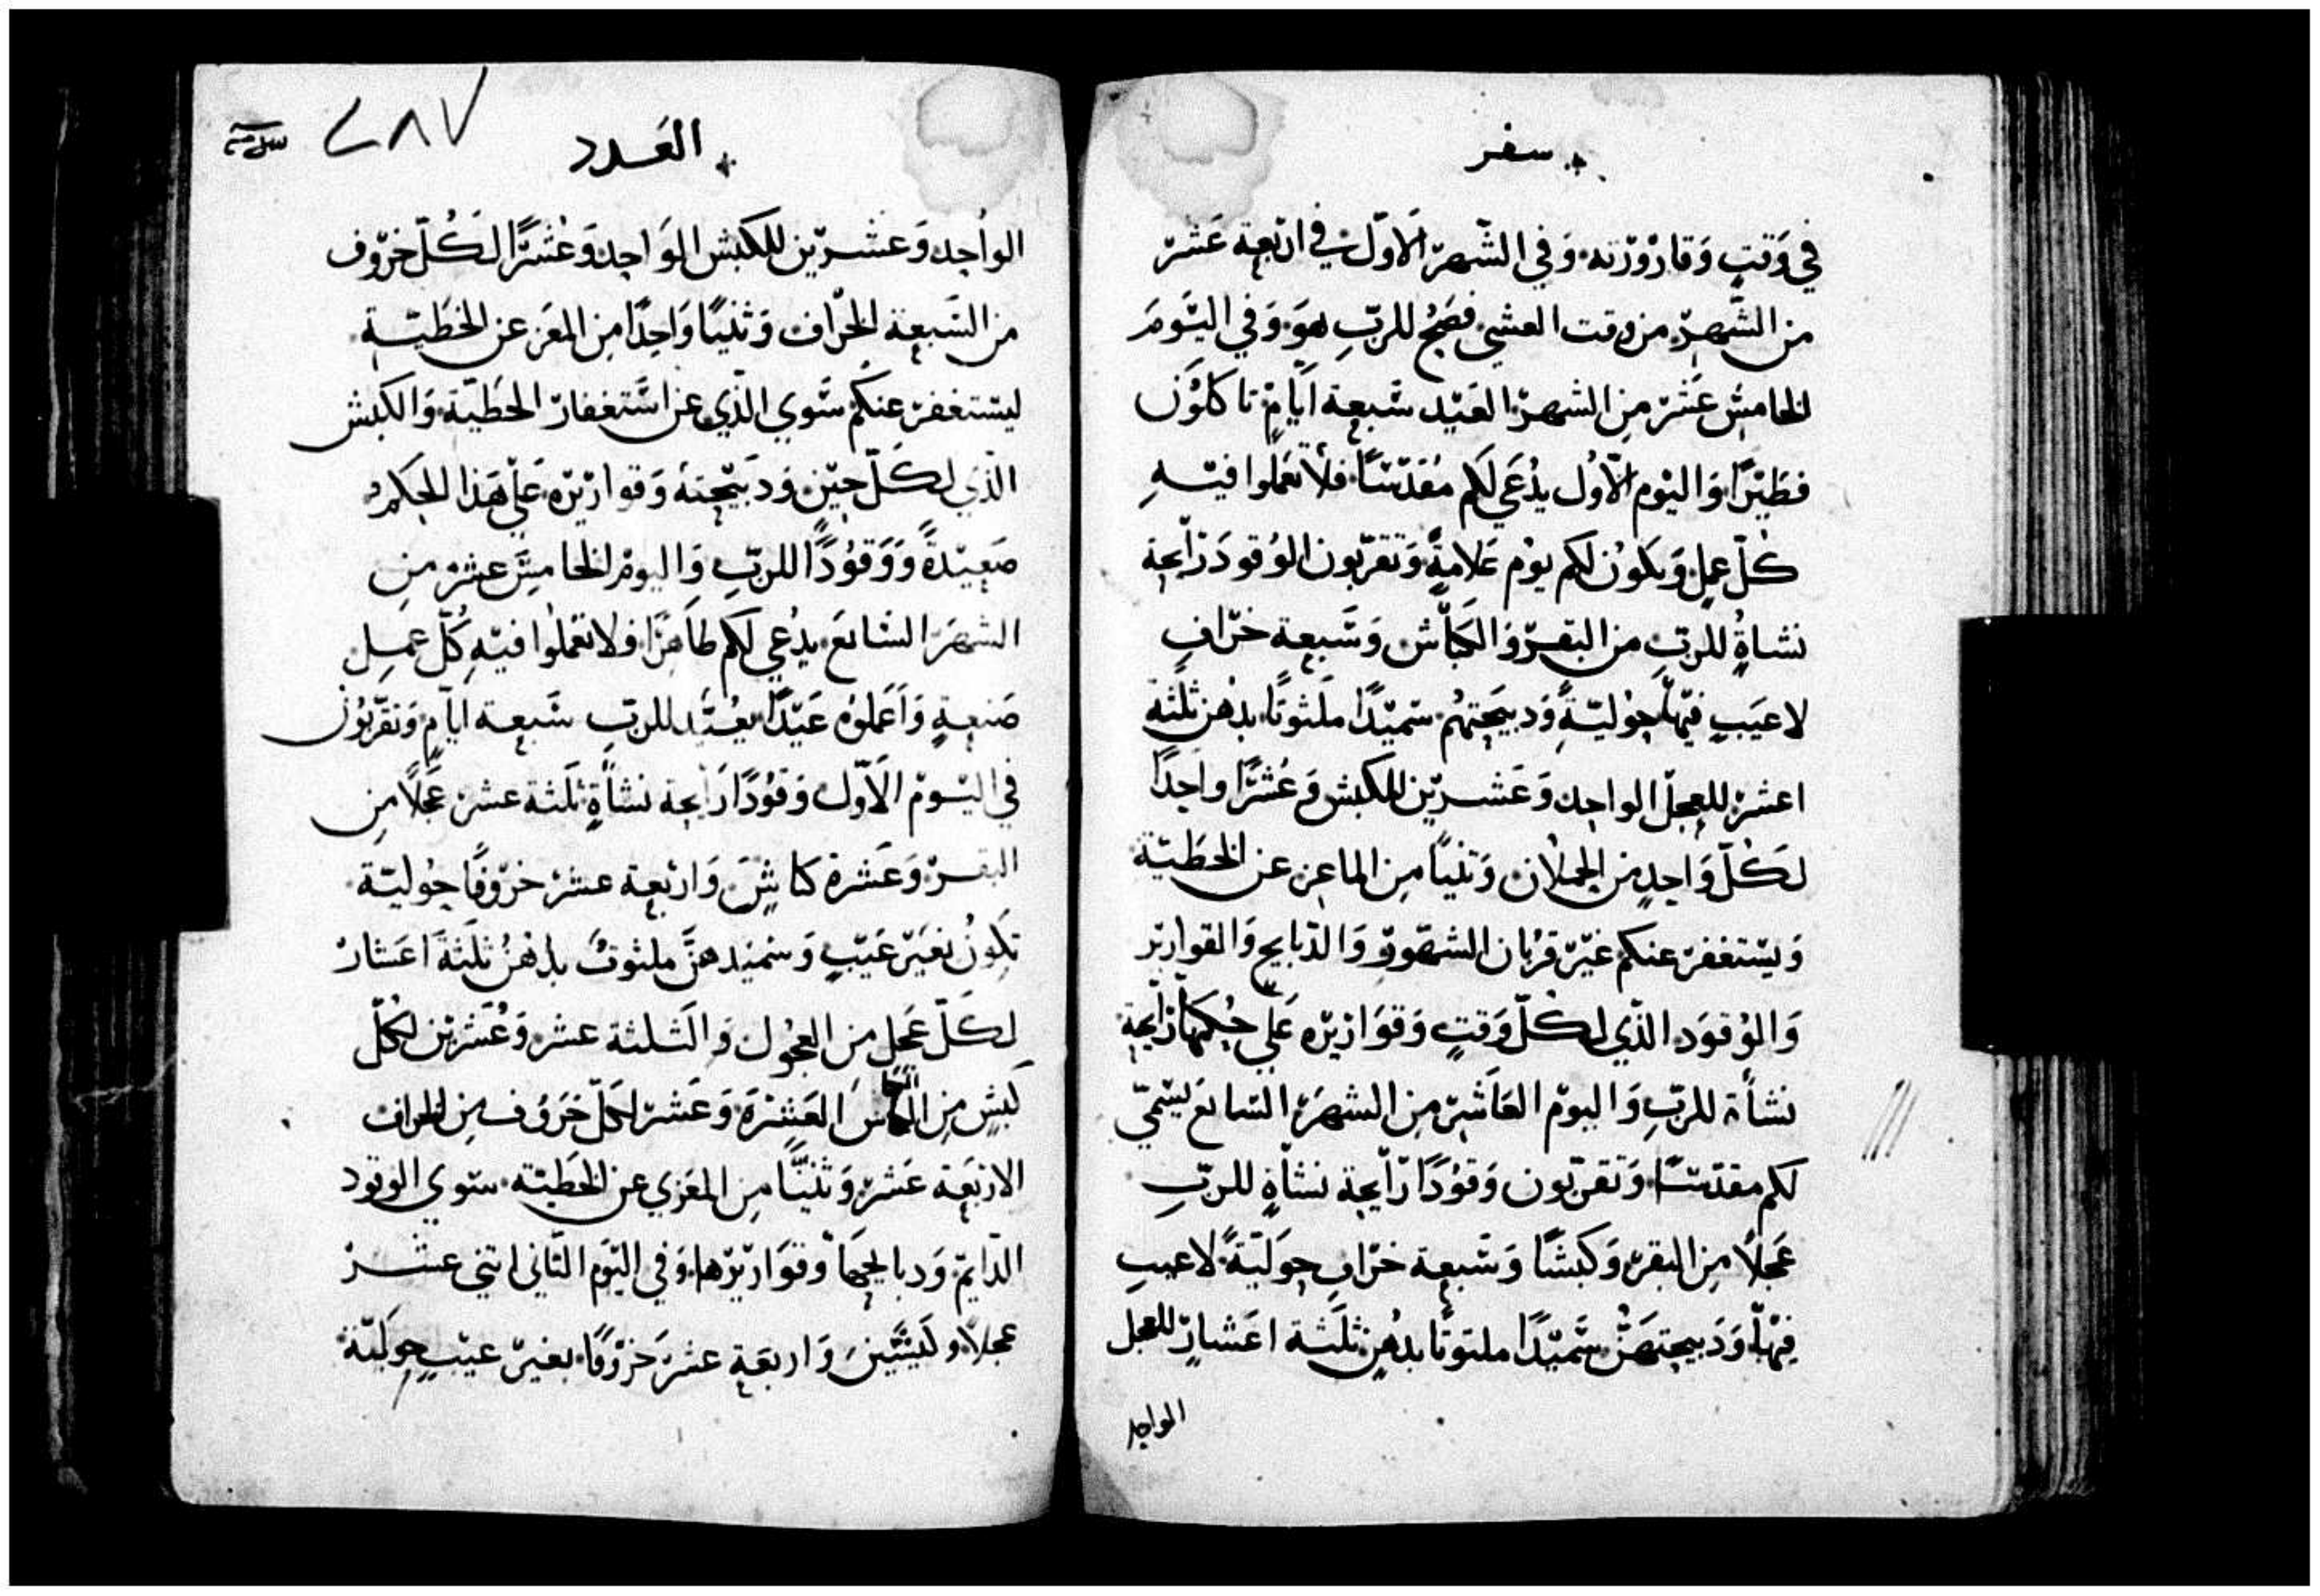 سفر
في وَقتٍ وَقارُوْرَته وَفي الشّهر الاَوّل في اربعة عَشر
من الشّهر من وقت العشي فصح للربّ هوَ وَفي اليَومَ
الخامس عَشر من الشهر العَيد سَبعة ايَّامٍ تاكلوُن
فطَيرًا وَاليوم الاّول يدُعَي لكم مقدّسًا فلا تعَملوا فيه
كلّ عملٍ وَيكوُن لكم يوْم عَلامةً وَتقرّبون الوُقودَ رَايحة
نشاةٍ للربّ من البقر وَالكباش وَسَبعة خرَافٍ
لا عيَبٍ فيهَا حوُليّةً وَدبيحَتهُم سَميدًا ملتوتًا بدُهن ثلثة
اعشر للعجل الواحد وَعَشرين للكبش وَعُشرًا واحدًا
لكلّ وَاحدٍ من الحملان وَثنيًا من الماعز عن الخطيّة
وَيستغفر عنكم غيَر قرُبان الشهوَر وَالدبايح وَالقوارير
وَالوُقوَد الذّي لكلّ وَقتٍ وَقوَاريره عَلي حُكمهَا رَايحة
نشاة للربّ وَاليوم العَاشر من الشهرَ السَابعَ يسَمّي
لكم مقدّسًا وَتقربّون وَقوُدًا رَايحة نشاةٍ للربّ
عَجلاً من البقر وَكبَشًا وَسَبعة خرَافٍ حوَليّةً لا عيبٍ
فيهَا وَدَبيحتهَن سَميدًا ملتوتًا بدُهنٍ ثلَثة اعَشارٍ للعجل
الواحد
العَدد
٢٨٧
الواُحد وَعشرين للكبش الوَاحد وَعُشرًا لكُلّ خروُف
من السَبعة الخرَاف وَثنيًا وَاحدًا من المعَز عن الخطَيّة
ليسَتغفر عنكَم سَوي الذّي عن اسَتغفار الخطَيّة وَالكبش
الذّي لكَلّ حيَن وَدَبيحته وَقواريره عَلي هَذا الحكم
صَعيدةً وَوَقوُدًا للربّ وَاليوم الخامسَ عشر من
الشهَر السَابعَ يدُعي لكم طاَهرًا فلا تعَملوا فيه كُلّ عملِ
صَنعةٍ وَاَعَملوُه عَيدًا يعُيّد للربّ سَبعة ايَّام وَتقرّبوُن
في اليَوم الاَوّل وَقوُدًا رَايحة نشاةٍ ثلَثة عشر عَجلاً من
البقر وَعَشرة كباشٍ وَاربعة عشر خروفًا حوُليّة
تكوُن بغَير عَيبٍ وَسَميدهنَّ ملتوتَ بدُهنٍ ثلَثةَ اعَشارَ
لكَلّ عجَلٍ من العجُول وَالثَلثة عشر وَعُشرين لكُلّ
كبَشٍ من الكباشَ العَشرَة وَعَشر لكلّ خَروُف من الخراف
الاربَعة عَشر وَثنيًّا من المعَزي عن الخطَيّة سَوي الوقود
الدّايم وَدبايحهَا وَقوَاريرها وَفي اليَوم الثّاني اثني عشر
عجلاً وكبَشّينَ وَاربعَة عشرَ خروَفًا بغير عيَبٍ حوليّة